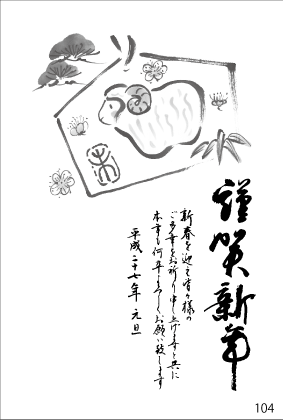 未
謹賀新年
新春を迎え皆々様の
ご多幸をお祈り申し上げますと共に
本年も何卒よろしくお願い致します
平成二十七年 元旦
104